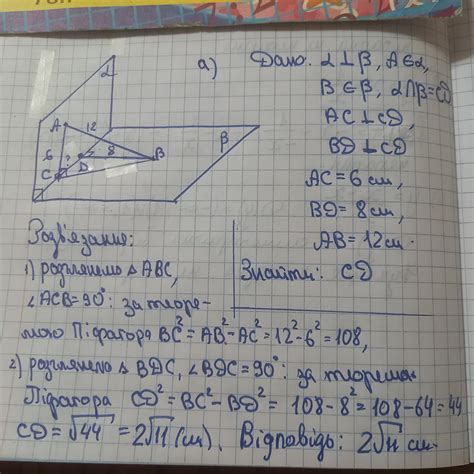 а) Дано: α ⊥ β, A ∈ α,
B ∈ β, α ∩ β = CD
AC ⊥ CD,
BD ⊥ CD
AC = 6 см,
BD = 8 см,
AB = 12 см.
Знайти: CD
α
A
12
β
6
?
8
B
C
D
Розв'язання:
1) розглянемо △ ABC,
∠ACB = 90°: за теоре-
мою Піфагора BC² = AB² - AC² = 12² - 6² = 108,
2) розглянемо △ BDC, ∠BDC = 90°: за теоремою
Піфагора CD² = BC² - BD² = 108 - 8² = 108 - 64 = 44
CD = √44 = 2√11 (см). Відповідь: 2√11 см.